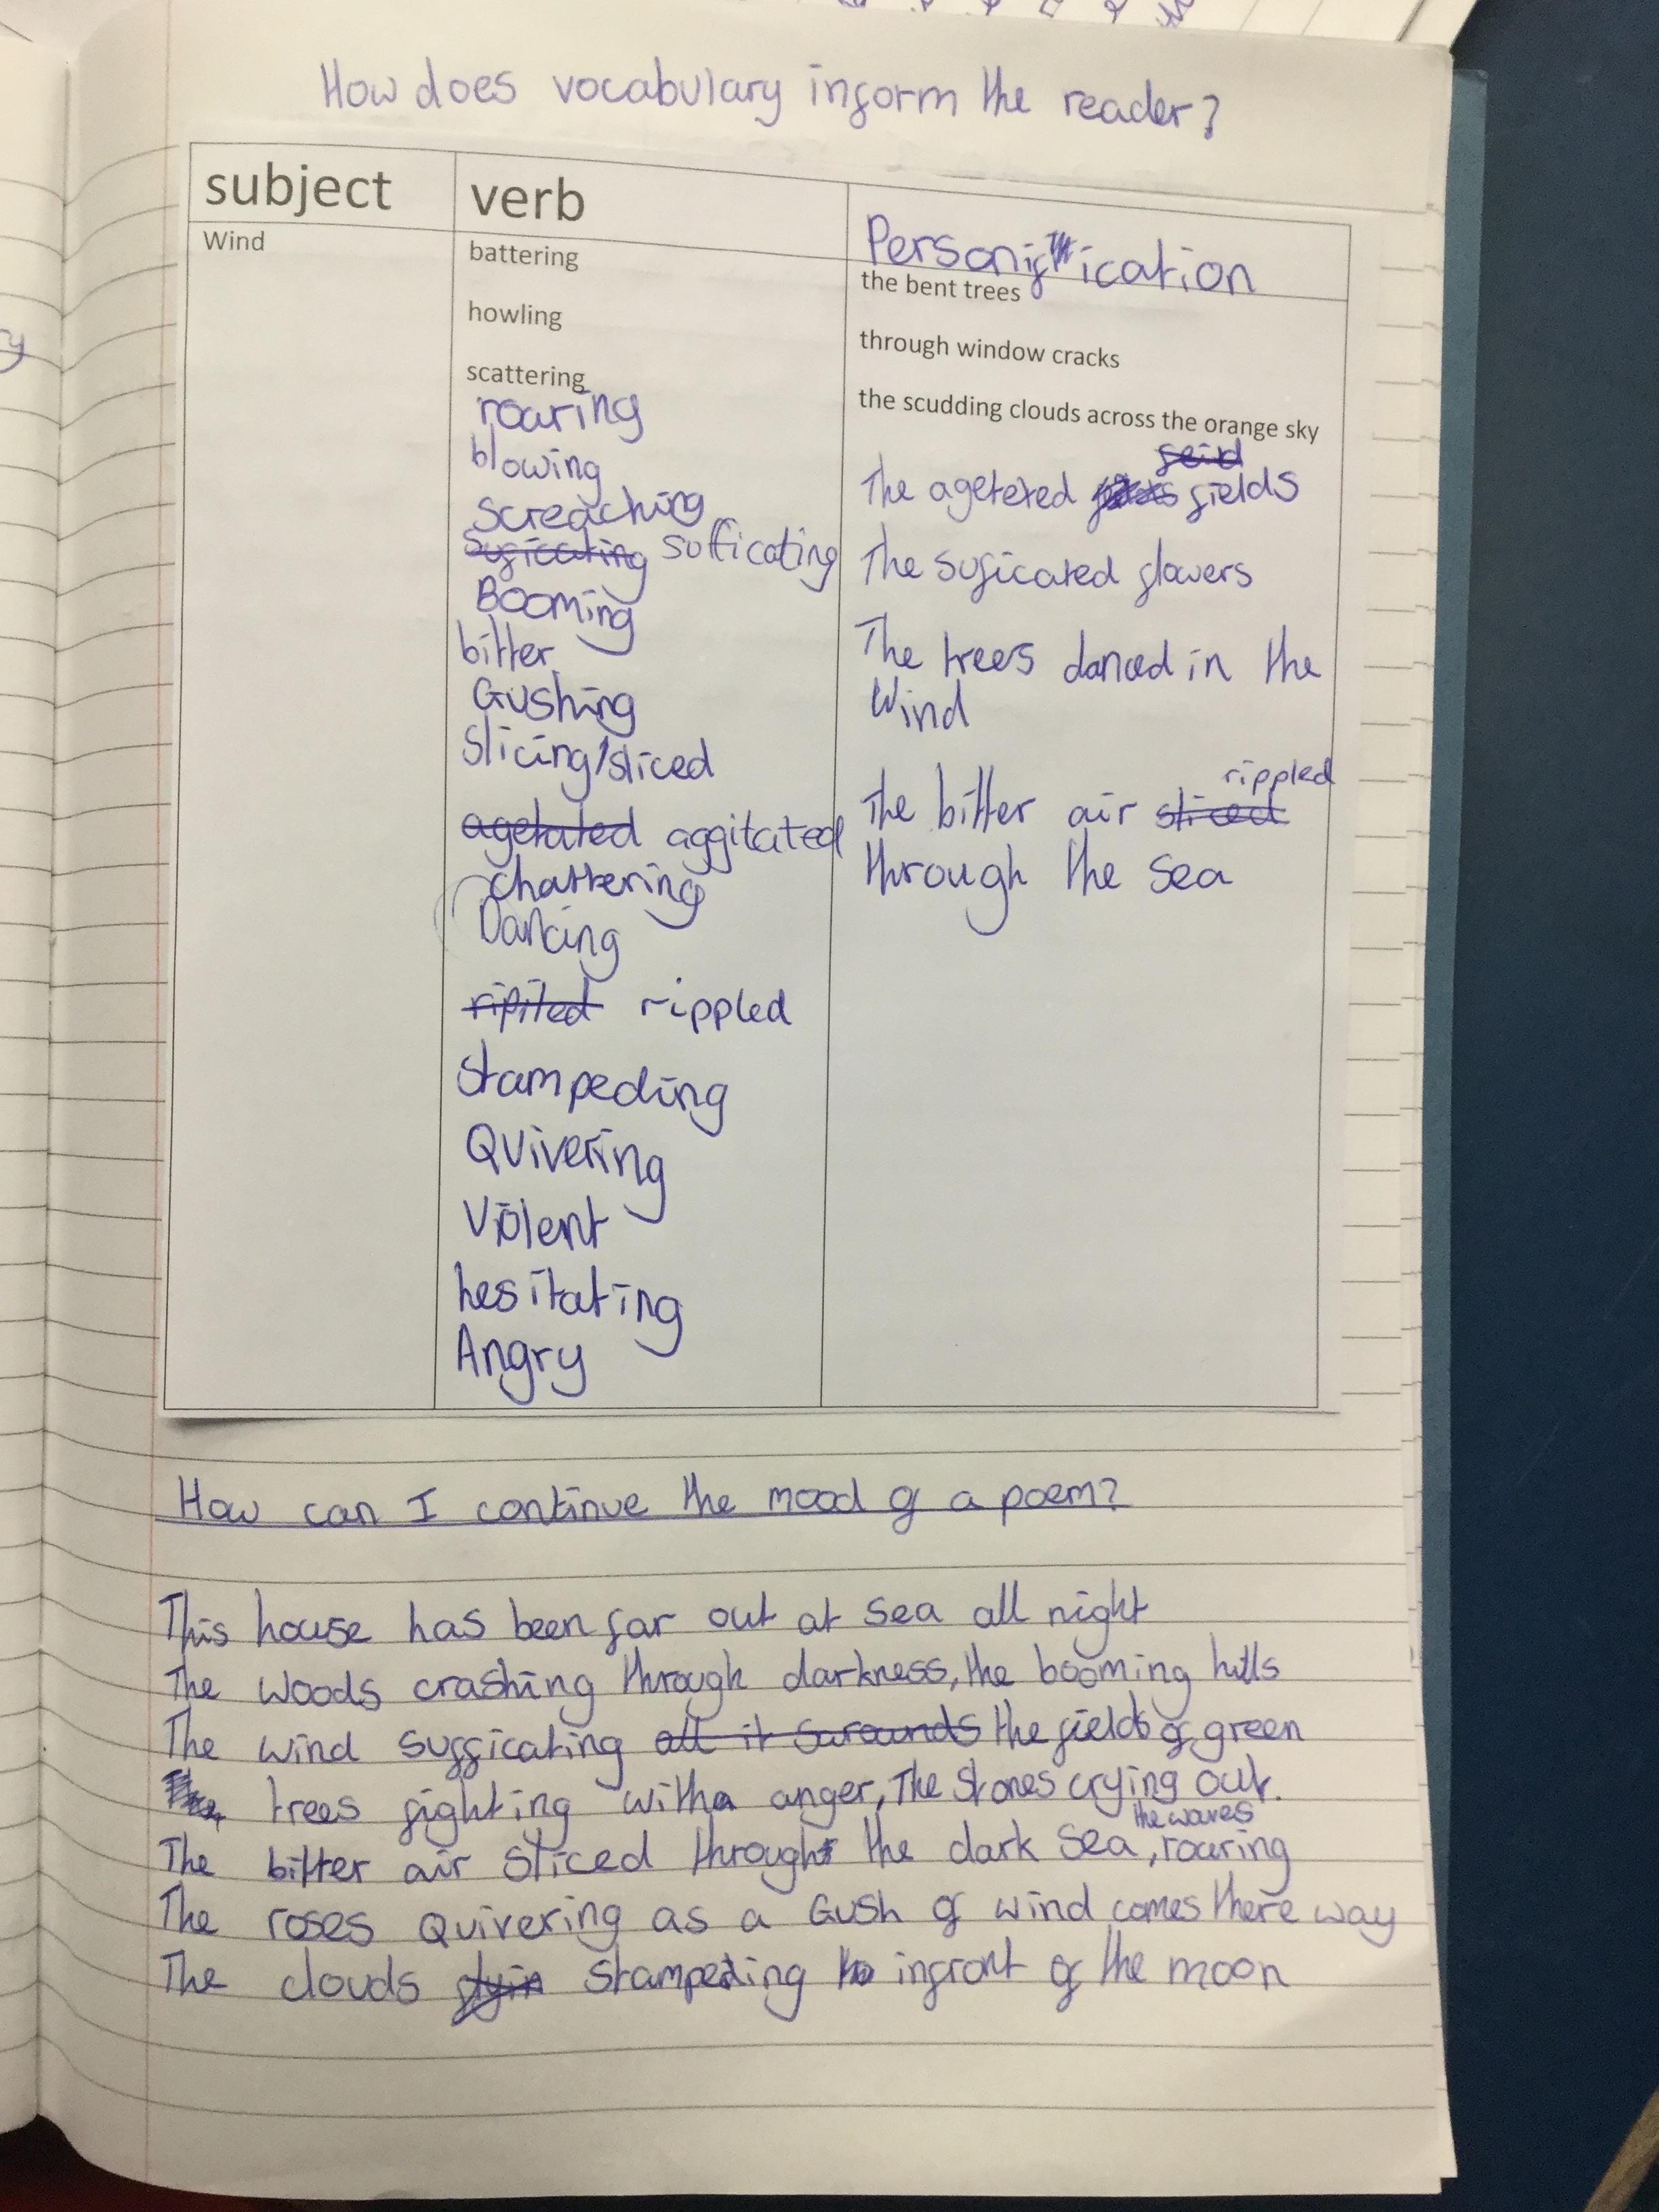 How does vocabulary inform the reader?
subject verb Personification
Wind battering the bent trees
howling through window cracks
scattering the scudding clouds across the orange sky
roaring
blowing
screaching
suficating sufficating
Booming
bitter
Gushing
slicing/sliced
agetated aggitated
chattering
Dancing
rippled
stampeding
Quivering
Violent
hesitating
Angry
feild
The agetered fields
The suficated flowers
The trees danced in the
Wind
rippled
The bitter air sliced
through the sea
How can I continue the mood of a poem?
This house has been far out at sea all night
The woods crashing through darkness, the booming hills
The wind sufficating all it sarounds the field of green
trees fighting with anger, The stones crying out.
the waves
The bitter air sliced through the dark sea, roaring
The roses Quivering as a Gush of wind comes there way
The clouds flyin stampeding infront of the moon